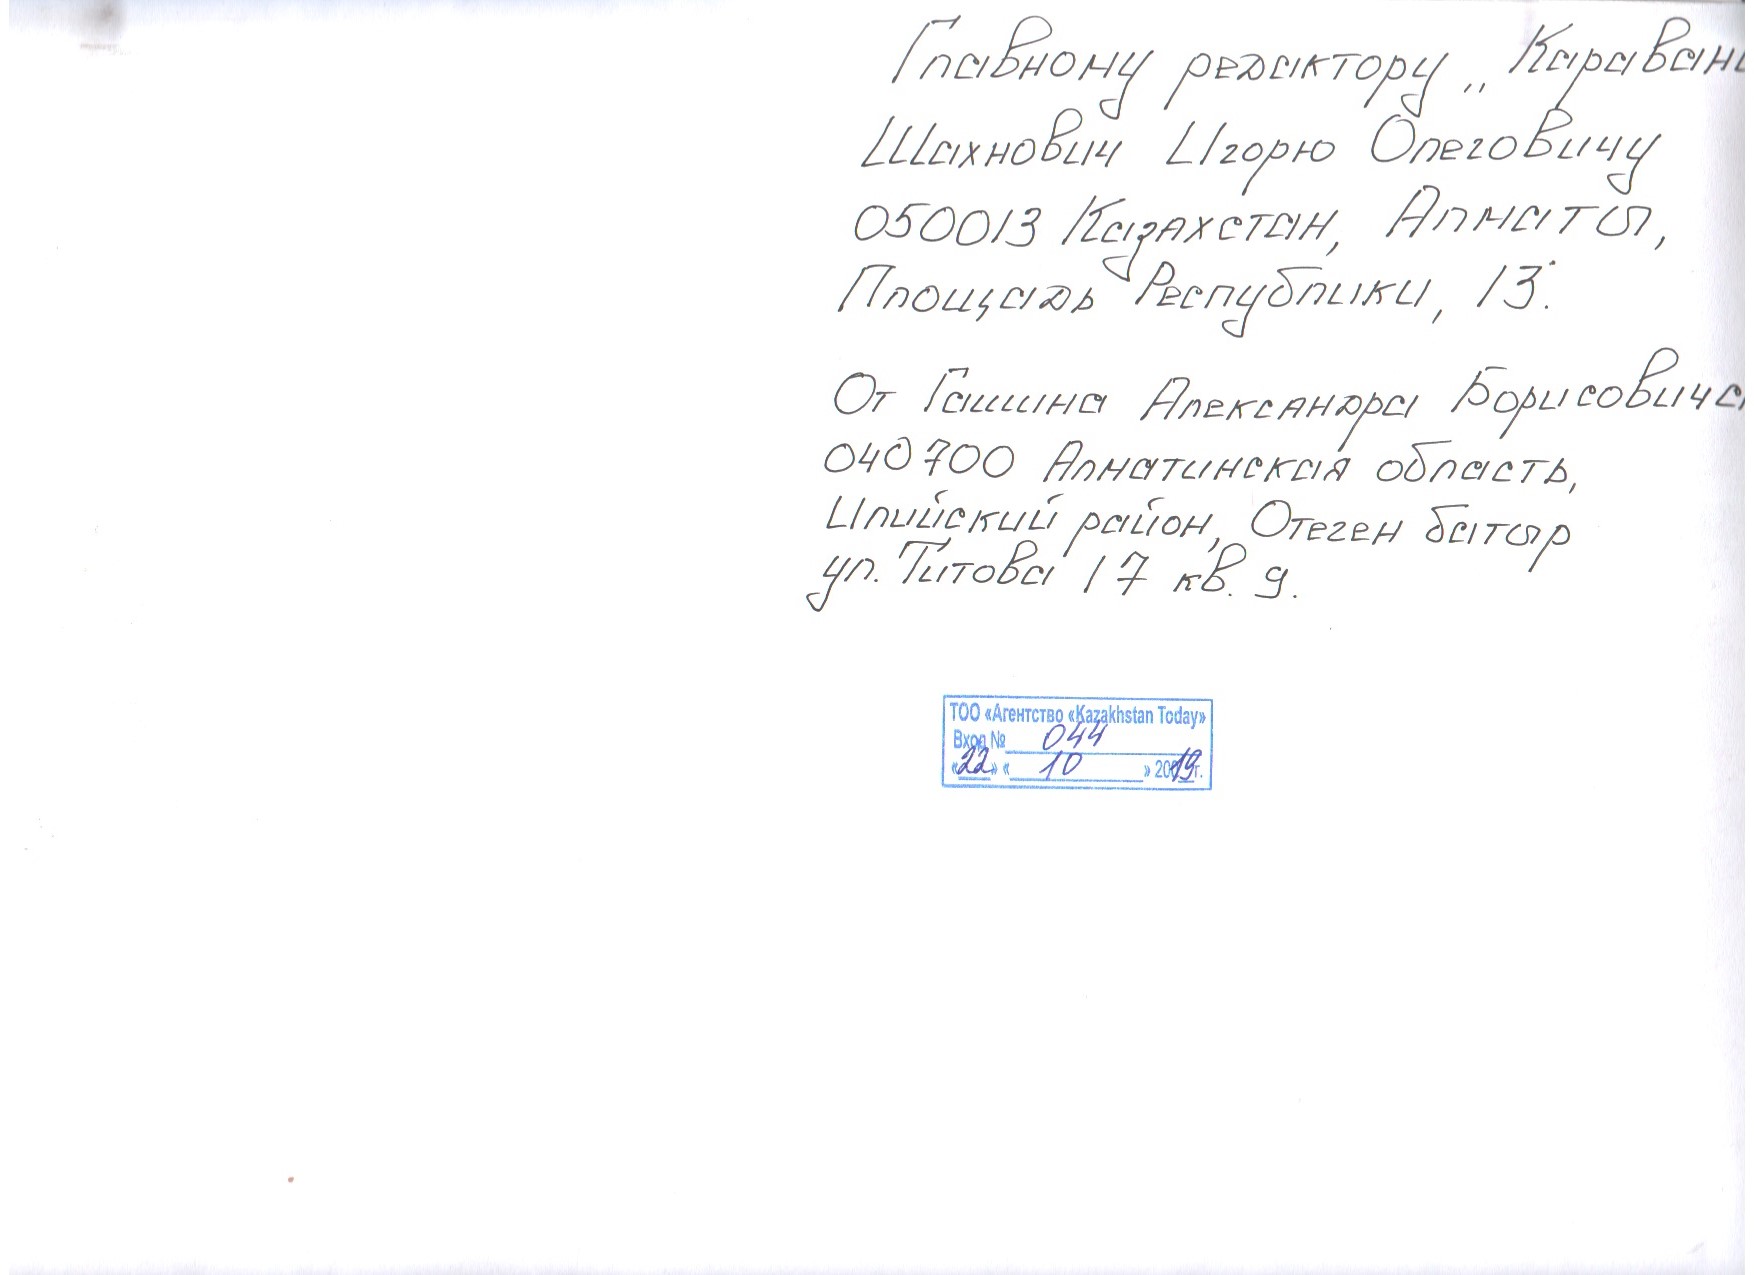 Главному редактору „Караван
Шахнович Игорю Олеговичу
050013 Казахстан, Алматы,
Площадь Республики, 13.
От Гашина Александра Борисовича
040700 Алматинская область,
Илийский район, Отеген батыр
ул. Титова 17 кв. 9.
ТОО «Агентство «Kazakhstan Today»
Вход № 044
«22» « 10 » 2019г.